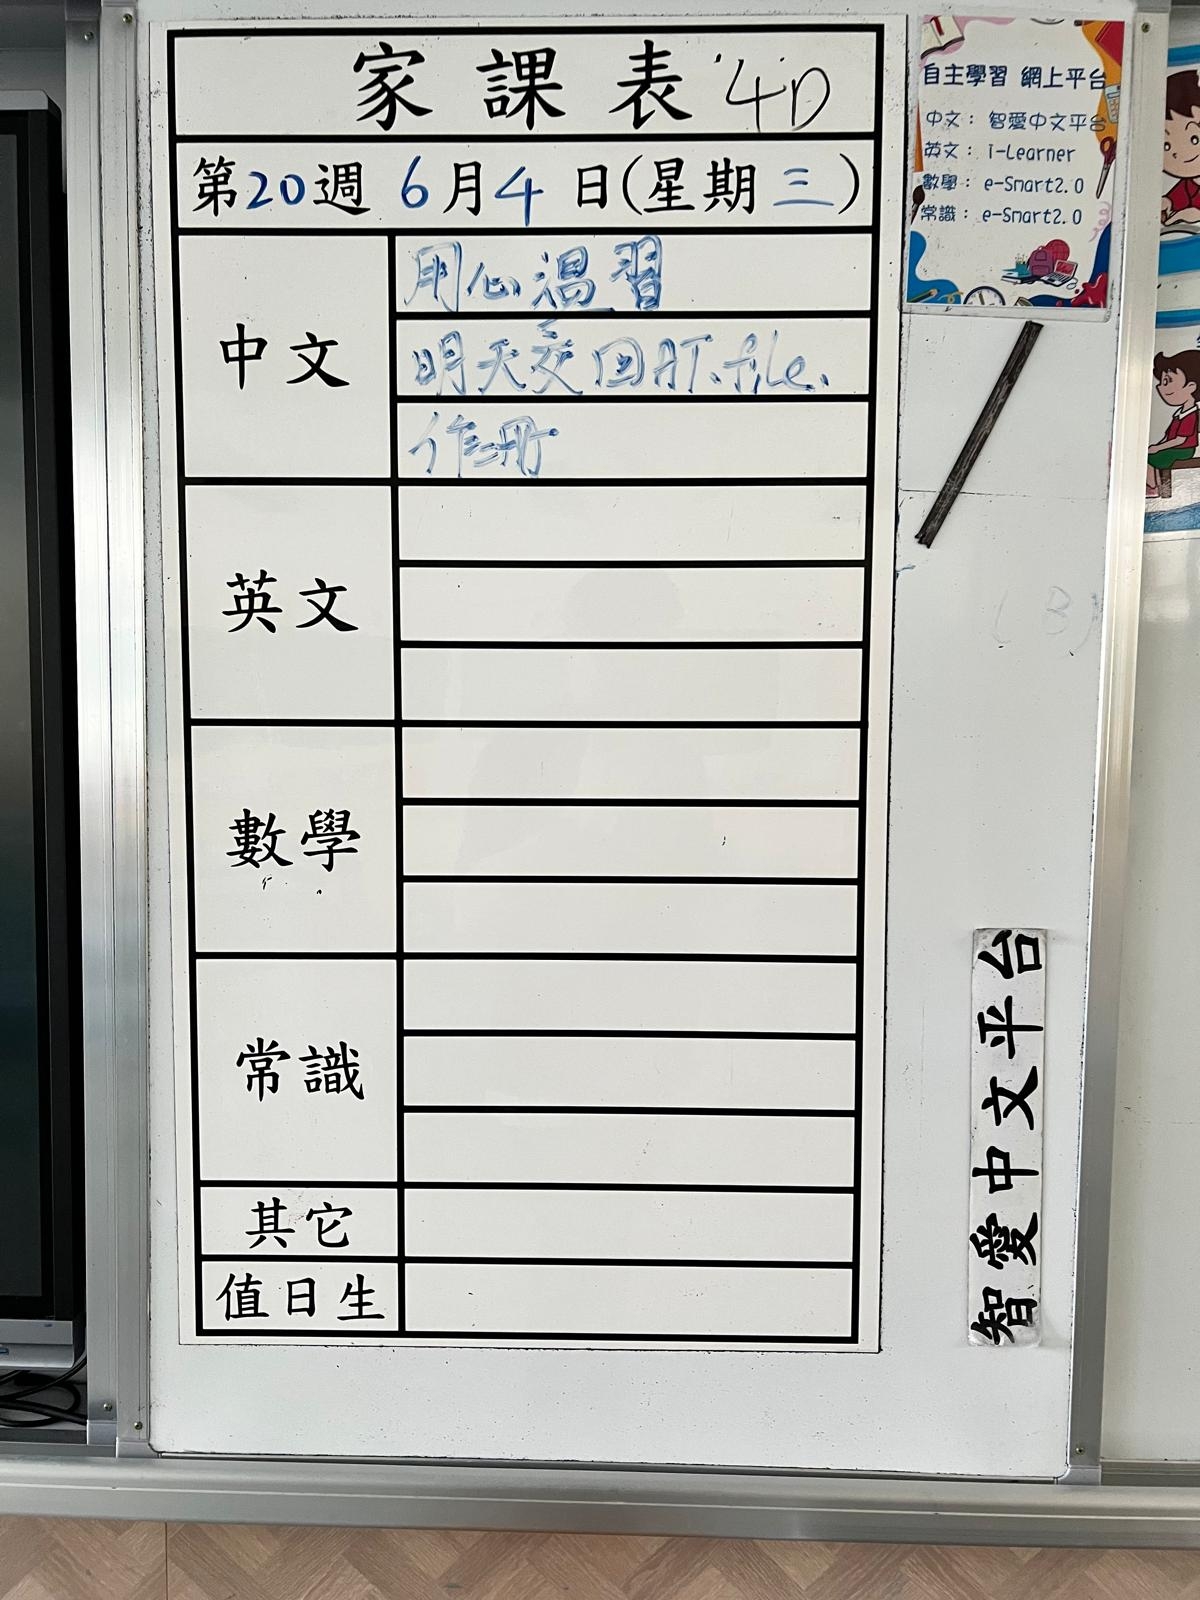 家課表 4D
第20週 6月4日(星期三)
中文
用心溫習
明天交回AT.file.
作冊
英文
數學
常識
其它
值日生
自主學習 網上平台
中文： 智愛中文平台
英文： i-Learner
數學： e-Smart2.0
常識： e-Smart2.0
智愛中文平台